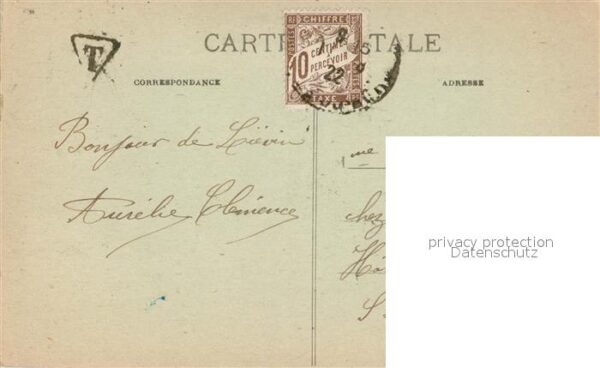 T
CARTE POSTALE
CHIFFRE
POSTES
10 CENTIMES À PERCEVOIR
TAXE
22
CORRESPONDANCE
ADRESSE
Bonjour de Liévin
Aurélie Clémence
me
chez
Hô
S
privacy protection
Datenschutz